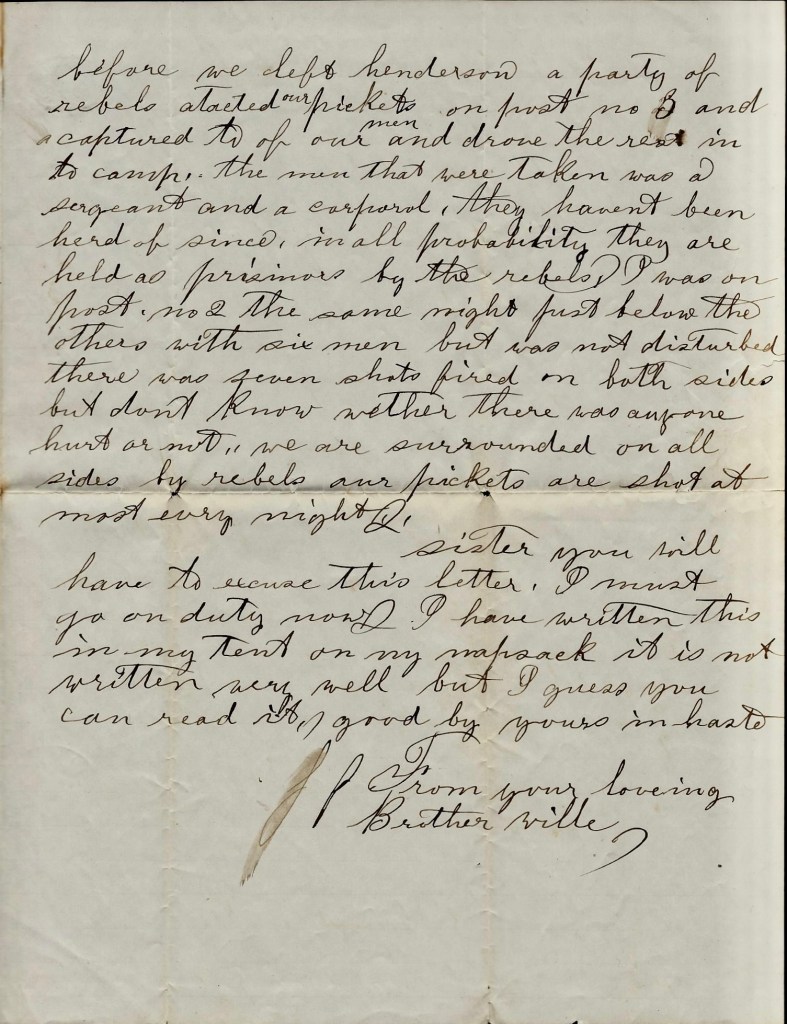 before we left henderson a party of
rebels atacted our pickets on post no 3 and
captured to of our men and drove the rest in
to camp,. the men that were taken was a
sergeant and a corporol, they havent been
herd of since, in all probability they are
held as prisinors by the rebels, I was on
post. no 2 the same night just below the
others with six men but was not disturbed
there was seven shots fired on both sides
but dont know wether there was anyone
hurt or not,, we are surrounded on all
sides by rebels our pickets are shot at
most evry night,
sister you will
have to excuse this letter. I must
go on duty now I have written this
in my tent on my napsack it is not
written very well but I guess you
can read it, good by yours in haste
From your loveing
Brother wille